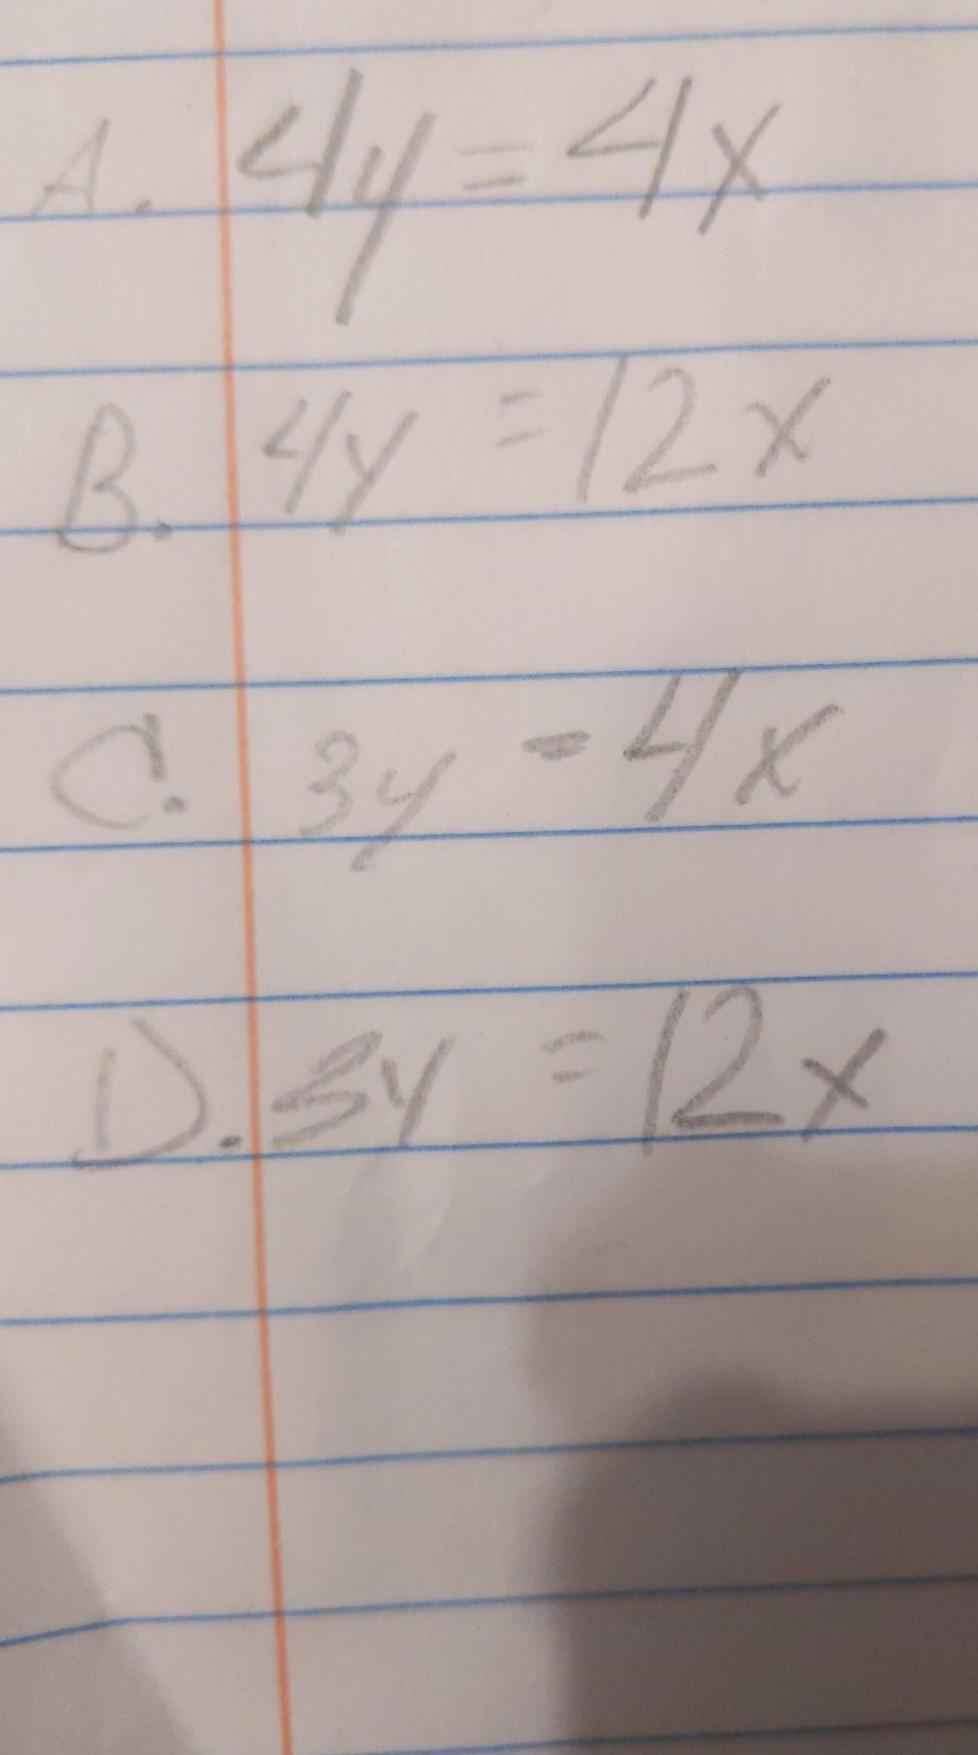 A. 4y = 4x
B. 4y = 12x
C. 3y - 4x
D. 3y = 12x